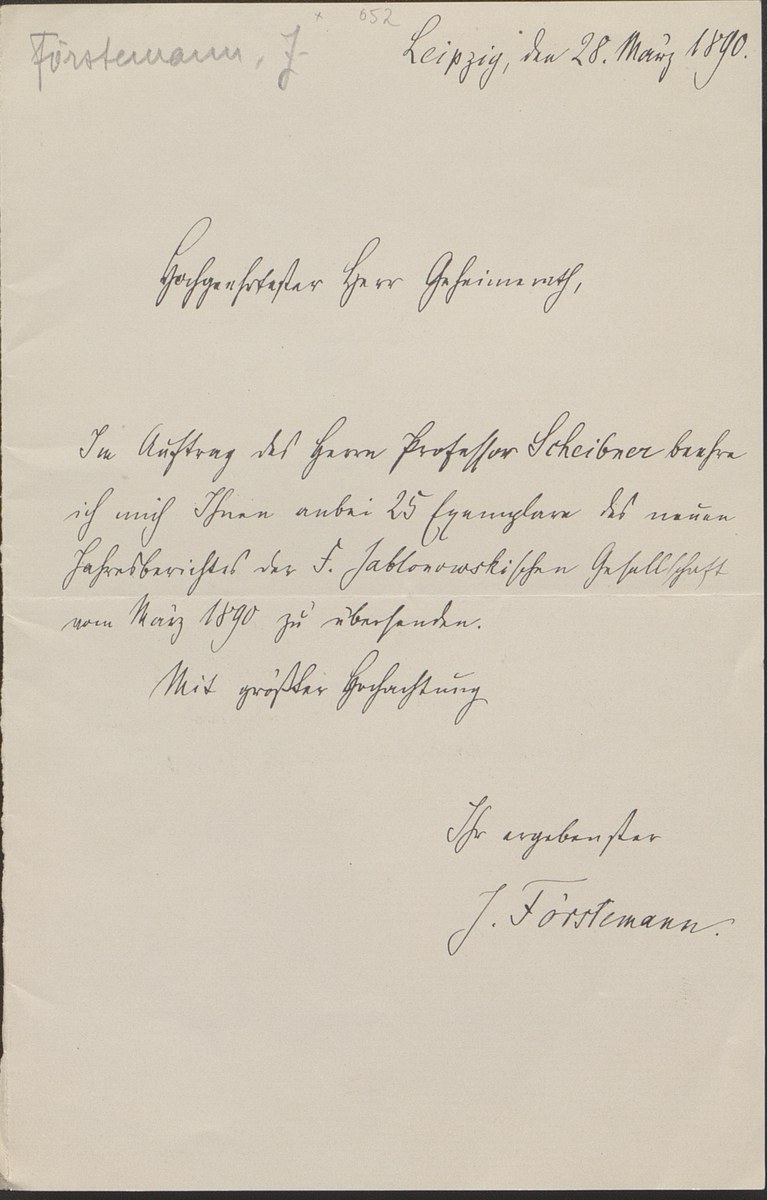 652
Förstemann, J.
Leipzig, den 28. März 1890.
Hochgeehrtester Herr Geheimerath,
Im Auftrag des Herrn Professor Scheibner beehre
ich mich Ihnen anbei 25 Exemplare des neuen
Jahresberichtes der F. Jablonowskischen Gesellschaft
vom März 1890 zu übersenden.
Mit größter Hochachtung
Ihr ergebenster
J. Förstemann.